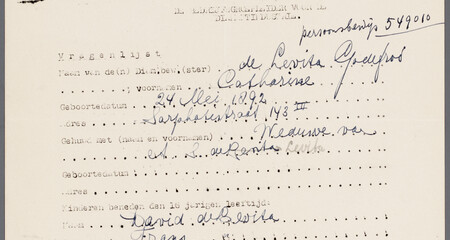 DE REDERSGEMEENDEN VAN DE
persoonsbewijs 549010
V r a g e n l i j s t
Naam van de(n) Dien.bew.(ster) de Levita Godefroi
" voornamen Catharine
Geboortedatum 24 Mei 1892
Adres Sarphatistraat 143 III
Gehuwd met (naam en voornamen) Weduwe van
de Levita
Geboortedatum :
Adres
Kinderen beneden den 16 jarigen leeftijd:
Naam David de Levita
Frans